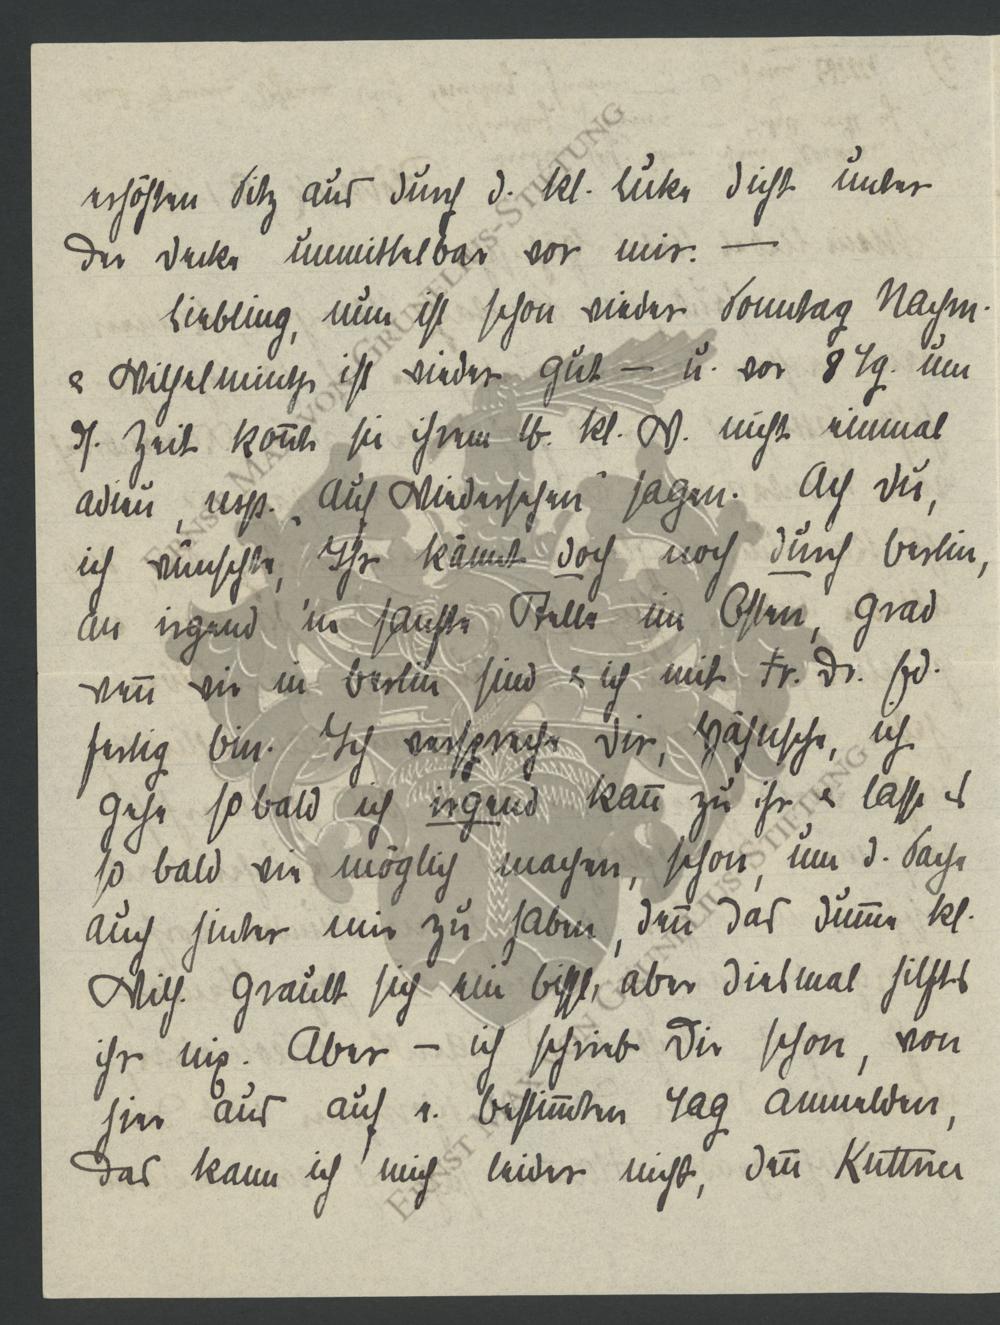 erhöhten Sitz aus durch d. kl. Luke dicht unter
der Decke unmittelbar vor mir. —
Liebling, nun ist schon wieder Sonntag Nachm.
& Wilhelminch ist wieder gut — u. vor 8 Tg. um
ds. Zeit kon̄te sie ihrem lb. kl. W. nicht einmal
adieu, resp. „auf Wiedersehen" sagen. Ach Du,
ich wünschte, Ihr kämt doch noch durch Berlin,
an irgend 'ne sanfte Stelle im Osten, grad
wen̄ wir in Berlin sind & ich mit Fr. Dr.
fertig bin. Ich verspreche Dir, Hähnsche, ich
gehe sobald ich irgend kan̄ zu ihr & lasse es
so bald wie möglich machen, schon, um d. Sache
auch hinter mir zu haben, den̄ das dum̄e kl.
Wilh. grault sich ein bissl, aber diesmal hilfts
ihr nix. Aber — ich schrieb Dir schon, von
hier aus auf e. bestim̄ten Tag anmelden,
das kann ich mich leider nicht, den̄ Kuttner
ERNST MAX VON GRUNELIUS-STIFTUNG
ERNST MAX VON GRUNELIUS-STIFTUNG